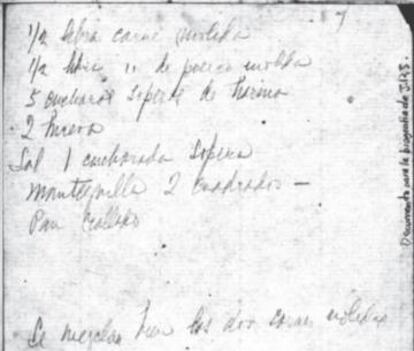 7
1/2 libra carne molida
1/2 libra " de puerco molida
5 cucharas soperas de harina
2 huevo
Sal 1 cucharada sopera
mantequilla 2 cuadrados —
Pan rallado
Se mezclan bien las dos carnes molidas
Documento para la biografía de J.R.J.